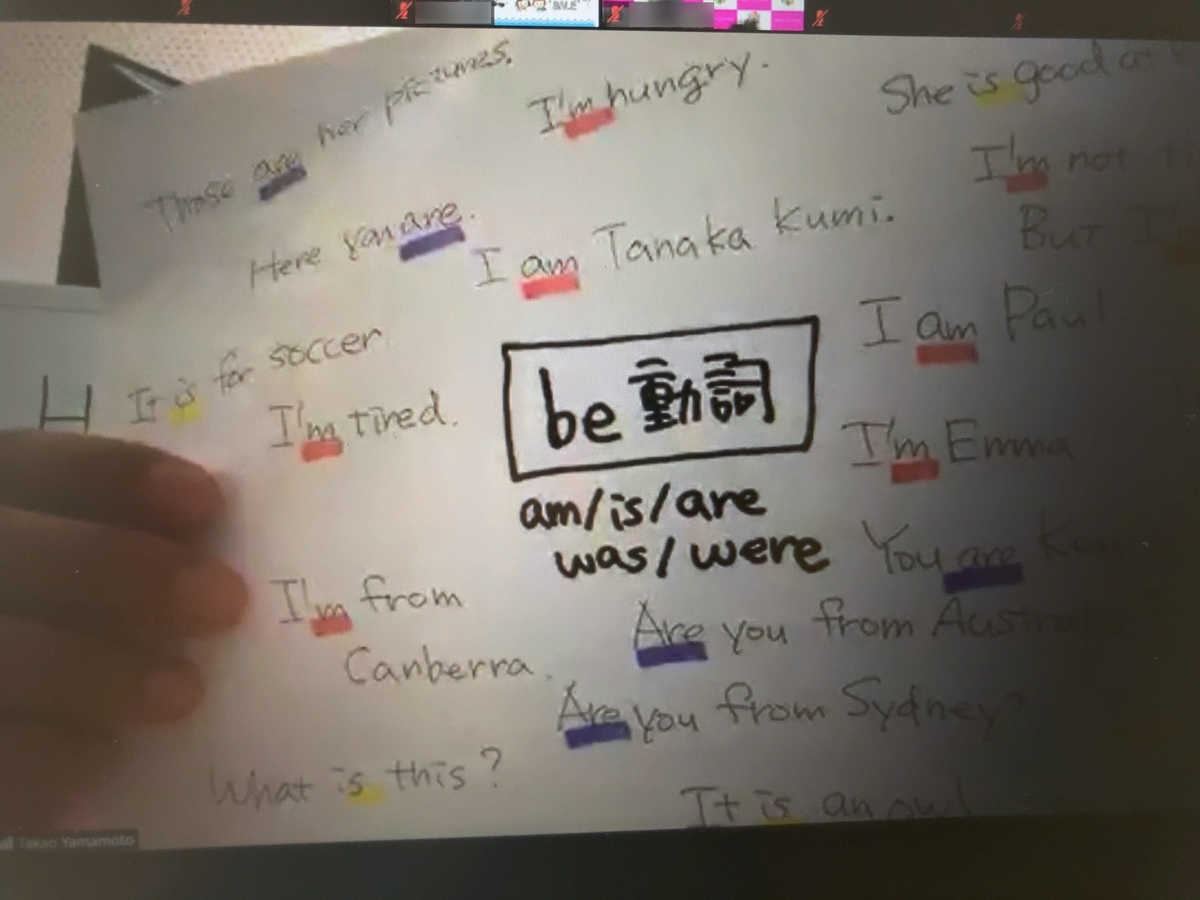 Those are her pictures.
I'm hungry.
She is good at
Here you are.
I'm not
I am Tanaka Kumi.
But I
It is for soccer
I am Paul
I'm tired.
be 動詞
I'm Emma
am/is/are
was/were
You are
I'm from
Canberra.
Are you from
Are you from Sydney?
What is this?
It is an owl
Takao Yamamoto